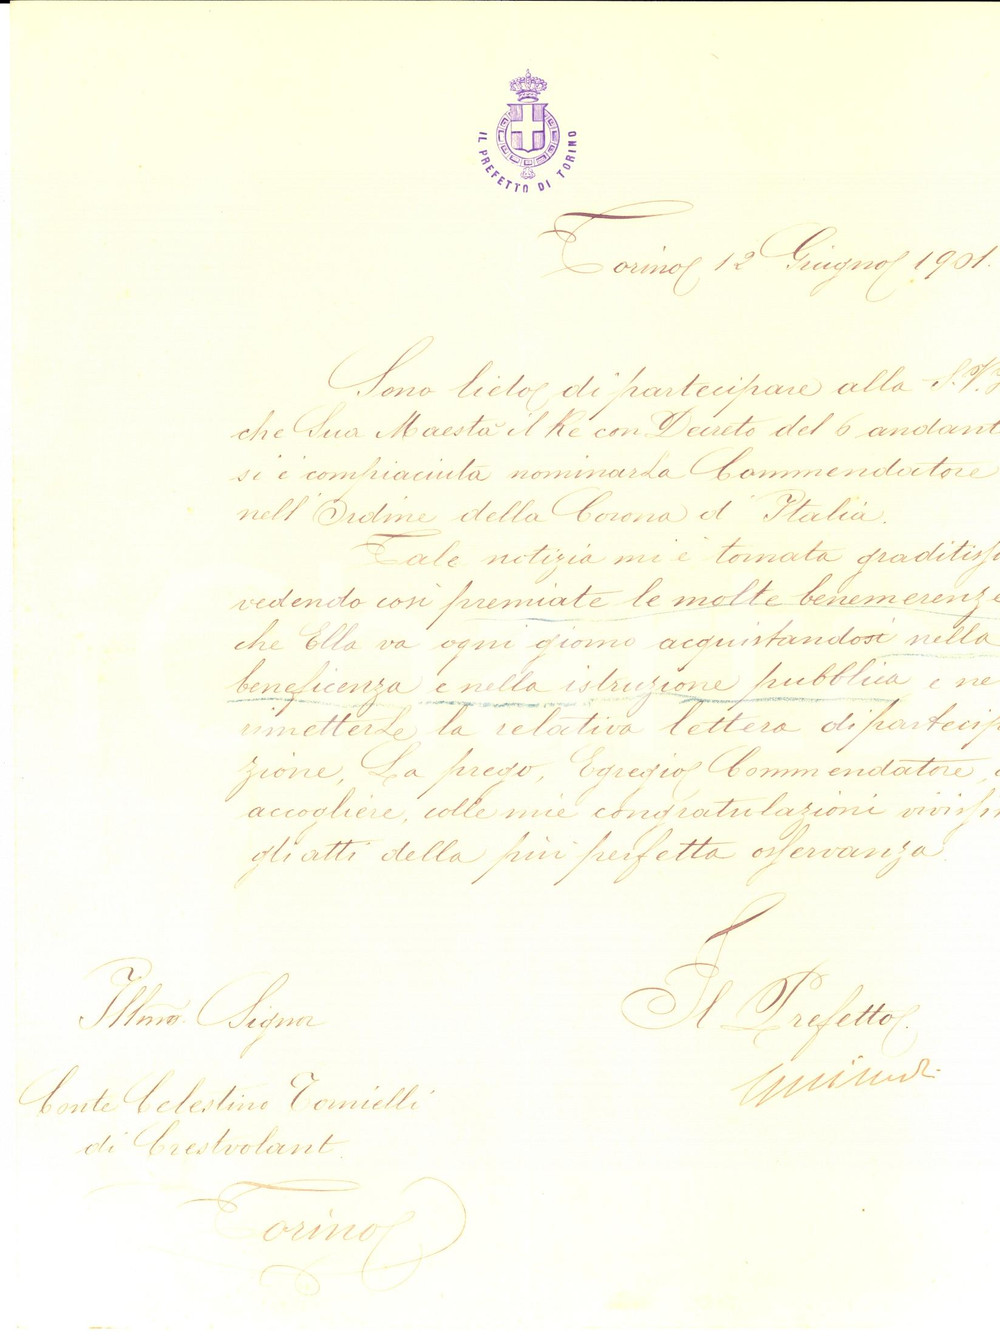 IL PREFETTO DI TORINO
Torino 12 Giugno 1901.
Sono lieto di partecipare alla S.V.
che Sua Maestà il Re con Decreto del 6 andant
si è compiaciuta nominarLa Commendatore
nell' Ordine della Corona d' Italia.
Tale notizia mi è tornata graditiss
vedendo così premiate le molte benemerenze
che Ella va ogni giorno acquistandosi nella
beneficenza e nella istruzione pubblica e ne
rimetterLe la relativa lettera di partecip
zione, La prego, Egregio Commendatore,
accogliere, colle mie congratulazioni vivissi
gli atti della più perfetta osservanza.
Il Prefetto.
Illmo. Signor
Conte Celestino
di Crestvolant.
Torino